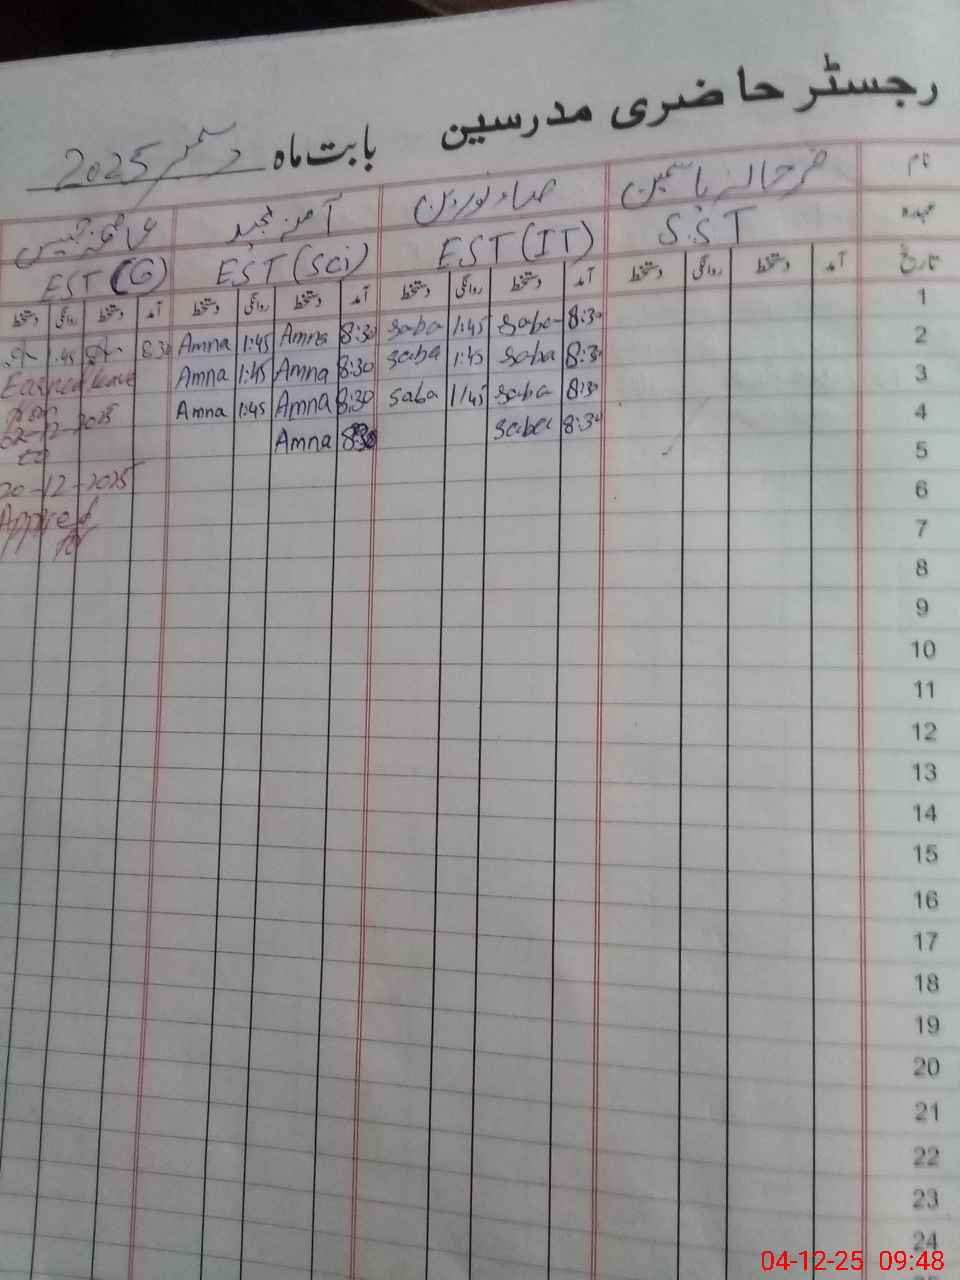 رجسٹر حاضری مدرسین بابت ماہ دسمبر 2025
نام فرحانہ یاسمین صباء نورین آمنہ مجید
عہدہ S.ST EST (IT) EST (Sci) EST (G)
تاریخ آمد دستخط روانگی دستخط آمد دستخط روانگی دستخط آمد دستخط روانگی دستخط آمد دستخط روانگی دستخط
1 8:30 Saba 1:45 Saba 8:30 Amna 1:45 Amna 8:30 1:45
2 8:30 Saba 1:45 Saba 8:30 Amna 1:45 Amna Earned leave
3 8:30 Saba 1:45 Saba 8:30 Amna 1:45 Amna from 02-12-2025
4 8:30 Saba 8:30 Amna to
5 20-12-2025
6
7
8
9
10
11
12
13
14
15
16
17
18
19
20
21
22
23
24
04-12-25 09:48